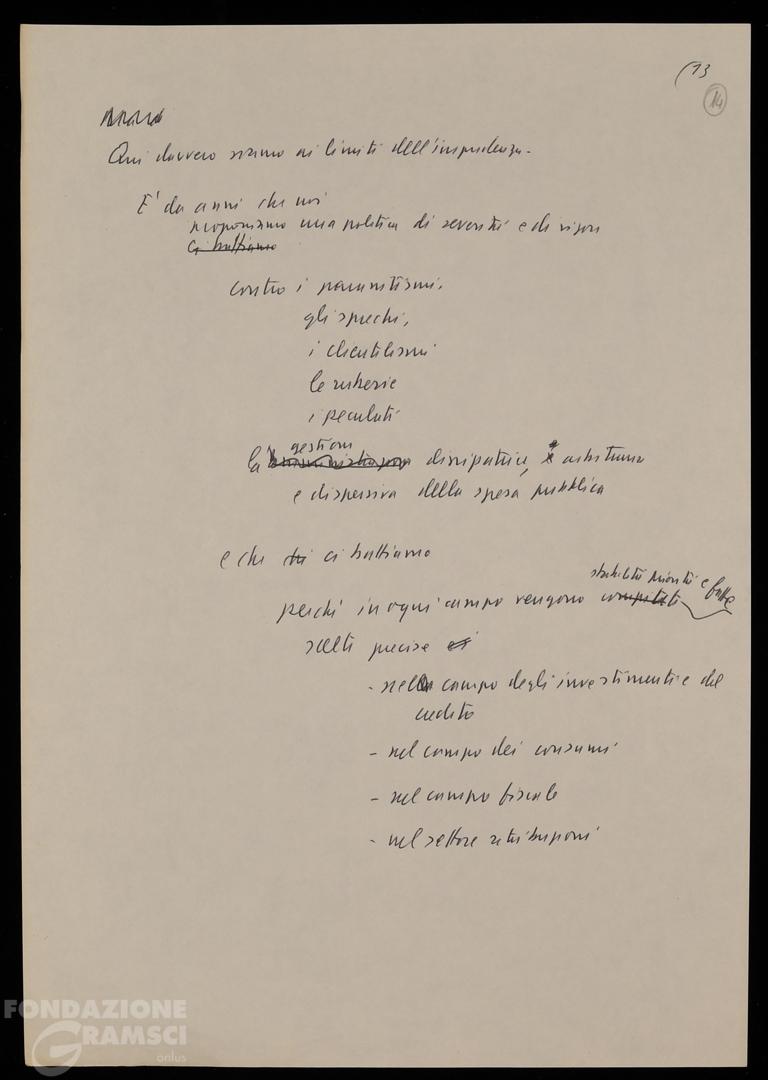 (13
14
Qui davvero siamo ai limiti dell'impudenza.
E' da anni che noi
proponiamo una politica di severità e di rigore
ci battiamo
contro i parassitismi,
gli sprechi,
i clientelismi
le ruberie
i peculati
gestione
la amministrazione dissipatrice, e arbitraria
e dispersiva della spesa pubblica
e che ci battiamo
stabilite priorità e fatte
perché in ogni campo vengono compiute
scelte precise
- nel campo degli investimenti e del
credito
- nel campo dei consumi
- nel campo fiscale
- nel settore retribuzioni
FONDAZIONE
GRAMSCI
onlus